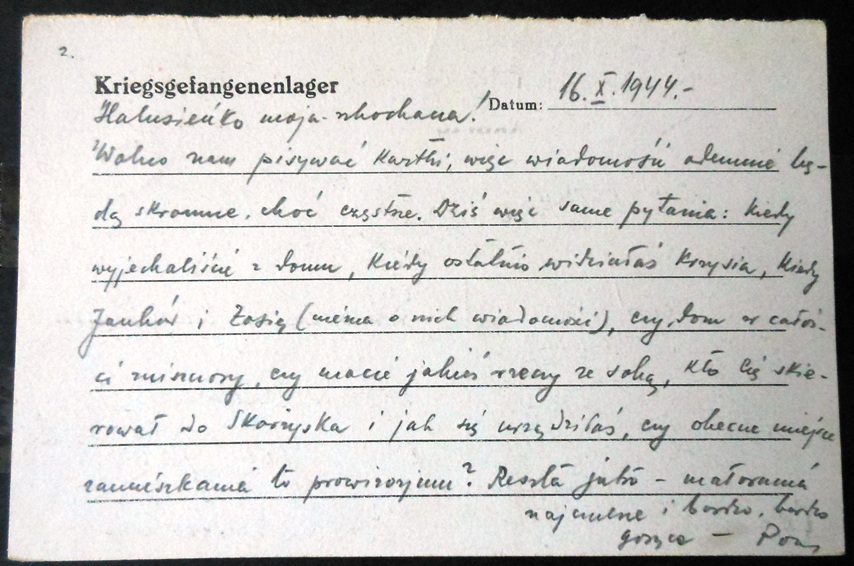 2.
Kriegsgefangenenlager
Datum: 16.X.1944.-
Halusieńko moja kochana!
Wolno nam pisywać kartki, więc wiadomości odemnie bę-
dą skromne, choć częstsze. Dziś więc same pytania: kiedy
wyjechaliście z domu, kiedy ostatnio widziałaś Krzysia, kiedy
Janków i Zosię (niema o nich wiadomości), czy dom w całoś-
ci zniszczony, czy macie jakieś rzeczy ze sobą, kto Cię skie-
rował do Skarżyska i jak się urządziłaś, czy obecne miejsce
zamieszkania to prowizorjum? Reszta jutro -
najczulsze i bardzo, bardzo
gorące —